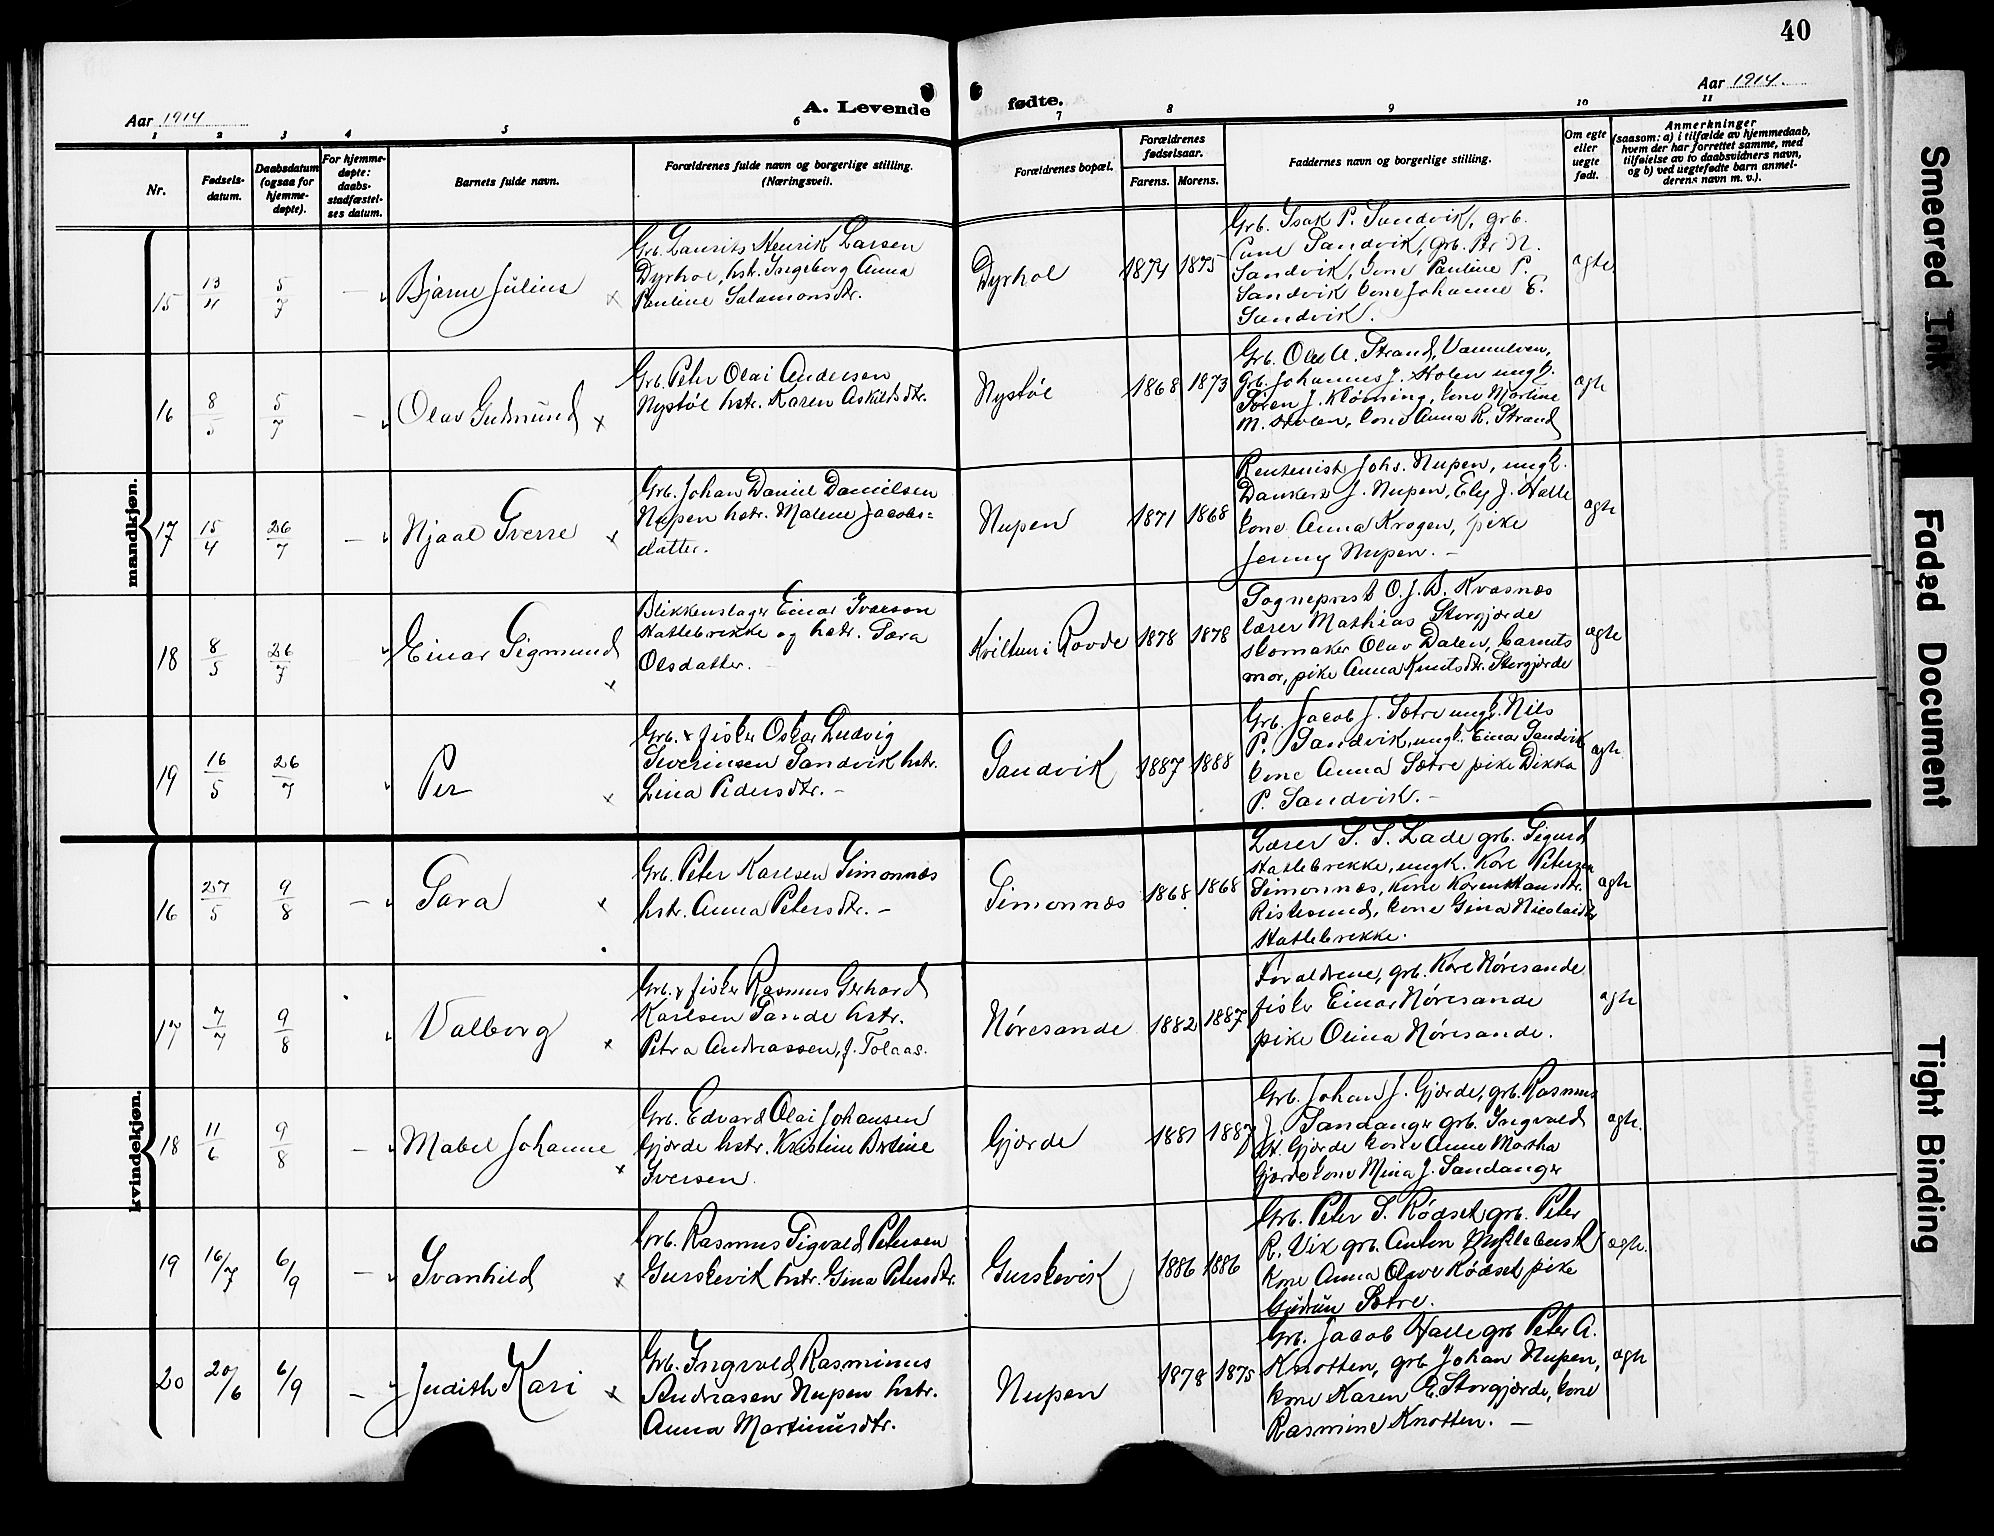 40
Aar 1914
A. Levende
fødte.
Aar 1914.
1 2 3 4 5 6 7 8 9 10 11
Nr.
Fødsels-
datum.
Daabsdatum
(ogsaa for
hjemme-
døpte).
For hjemme-
døpte:
daabs-
stadfæstel-
ses datum.
Barnets fulde navn.
Forældrenes fulde navn og borgerlige stilling.
(Næringsvei).
Forældrenes bopæl.
Forældrenes
fødselsaar.
Farens. Morens.
Faddernes navn og borgerlige stilling.
Om egte
eller
uegte
født.
Anmerkninger
(saasom: a) i tilfælde av hjemmedaab,
hvem der har forrettet samme, med
tilføielse av to daabsvidners navn,
og b) ved uegtefødte barn anmel-
derens navn m. v.).
mandkjøn.
15 13/4 5/7 — Bjarne Julius x
Grb. Laurits Henrik Larsen
Dyrhol, hstr. Ingeborg Anna
Pauline Salamonsdtr.
Dyrhol 1874 1875
Grb. Isak P. Sandvik, grb.
Sandvik, grb. Pr. N.
Sandvik, kone Pauline P.
Sandvik kone Johanne E.
Sandvik.
ægte
16 8/5 5/7 — Olav Gudmund x
Grb. Peter Olai Andersen
Nystøl hstr. Karen Askildsdtr.
Nystøl 1868 1873
Grb. Ole A. Strand, Vannelven,
Grb. Johannes J. Stolen ungk.
Søren J. Kløvning, kone Martine
M. Stolen, kone Anna R. Strand
ægte
17 15/4 26/7 — Njaal Sverre x
Grb. Johan Daniel Danielsen
Nupen hstr. Malene Jacobs-
datter.
Nupen 1871 1868
Rentenist Johs. Nupen, ungk.
Dankert J. Nupen, Ely J. Halle
kone Anna Krogen, pike
Jenny Nupen. —
ægte
18 8/5 26/7 — Einar Sigmund x
Blikkenslager Einar Iversen
Hatlebrekke og hstr. Sara
Olsdatter.
Kvilhun i Rovde 1878 1878
Sogneprest O. J. B. Kvasnæs
lærer Mathias Storgjørde
skomaker Olav Dalen, barnets
mor, pike Anna Knutsdtr. Storgjørde
ægte
19 16/5 26/7 Per x
Grb. & fisker Oskar Ludvig
Severinsen Sandvik hstr.
Lina Pedersdtr. —
Sandvik 1887 1888
Grb. Jacob J. Sætre ungk. Nils
P. Sandvik, ungk. Einar Sandvik
kone Anna Sætre pike Dikka
P. Sandvik. —
ægte
kvindekjøn.
16 27/5 9/8 — Sara x
Grb. Peter Karlsen Simonnæs
hstr. Anna Petersdtr. —
Simonnæs 1868 1868
Lærer S. S. Lade grb. Sigurd
Hatlebrekke, ungk. Kore Petersen
Simonnæs, kone Karen Hansdtr.
Riskesund, kone Gina Nicolaidtr.
Hatlebrekke.
ægte
17 7/7 9/8 Valborg x
Grb. & fisker Rasmus Gerhard
Karlsen Sande hstr.
Petra Andreassen, f. Tolaas.
Nøresande 1882 1887
Foraldrene, grb. Kore Nøresande
fisker Einar Nøresande
pike Olina Nøresande.
ægte
18 11/6 9/8 — Mabel Johanne x
Grb. Edvard Olai Johansen
Gjørde hstr. Kristine Britine
Iversen.
Gjørde 1881 1887
Grb. Johan J. Gjørde, grb. Rasmus
J. Sandanger grb. Ingvald
Gjørde kone Anne Martha
Gjørde kone Mina J. Sandanger
ægte.
19 16/7 6/9 — Svanhild x
Grb. Rasmus Sigvald Petersen
Gurskevik hstr. Gina Petersdtr.
Gurskevik 1886 1886
Grb. Peter S. Rødset grb. Peter
R. Vik grb. Anton Myklebust
kone Anna Olave Rødset pike
Gudrun Sætre.
ægte.
20 20/6 6/9 — Judith Kari x
Grb. Ingvald Rasminus
Andreasen Nupen hstr.
Anna Martinusdtr.
Nupen 1878 1875
Grb. Jacob Halle grb Peter A.
Knotten, grb. Johan Nupen,
kone Karen E. Storgjørde, kone
Rasmine Knotten. —
ægte
Smeared Ink
Faded Document
Tight Binding